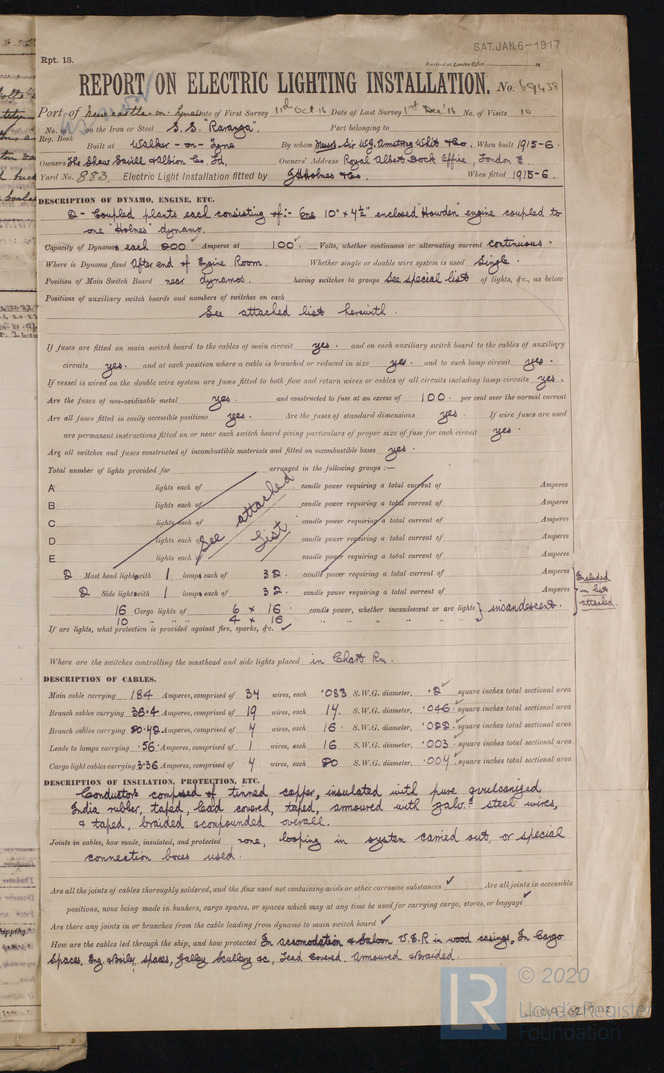 SAT. JAN. 6-1917
Rpt. 13.
Received at London Office
REPORT ON ELECTRIC LIGHTING INSTALLATION. No. 69438
Port of Newcastle-on-Tyne Date of First Survey 11th Oct 16 Date of Last Survey 1st Dec 16 No. of Visits 10
No. in Reg. Book on the Iron or Steel S.S. "Raranga". Port belonging to
Built at Walker-on-Tyne By whom Messrs Sir W.G. Armstrong Whit & Co. When built 1915-6.
Owners The Shaw Savill & Albion Co. Ld. Owners' Address Royal Albert Dock Office, London E
Yard No. 883 Electric Light Installation fitted by J.H. Holmes & Co. When fitted 1915-6.
DESCRIPTION OF DYNAMO, ENGINE, ETC.
2 - Coupled plants each consisting of:- One 10" x 4½" enclosed "Howden" engine coupled to
one "Holmes" dynamo.
Capacity of Dynamos each 200 Amperes at 100 Volts, whether continuous or alternating current continuous.
Where is Dynamo fixed After end of Engine Room. Whether single or double wire system is used Single.
Position of Main Switch Board near dynamos. having switches to groups See special list of lights, &c., as below
Positions of auxiliary switch boards and numbers of switches on each
See attached list herewith.
If fuses are fitted on main switch board to the cables of main circuit yes. and on each auxiliary switch board to the cables of auxiliary
circuits yes. and at each position where a cable is branched or reduced in size yes. and to each lamp circuit yes.
If vessel is wired on the double wire system are fuses fitted to both flow and return wires or cables of all circuits including lamp circuits yes.
Are the fuses of non-oxidizable metal yes. and constructed to fuse at an excess of 100. per cent over the normal current
Are all fuses fitted in easily accessible positions yes. Are the fuses of standard dimensions yes. If wire fuses are used
are permanent instructions fitted on or near each switch board giving particulars of proper size of fuse for each circuit yes.
Are all switches and fuses constructed of incombustible materials and fitted on incombustible bases yes.
Total number of lights provided for arranged in the following groups :—
A lights each of candle power requiring a total current of Amperes
B lights each of candle power requiring a total current of Amperes
C lights each of candle power requiring a total current of Amperes
D lights each of candle power requiring a total current of Amperes
E lights each of candle power requiring a total current of Amperes
See attached List
2 Mast head lights with 1 lamps each of 32. candle power requiring a total current of Amperes
2 Side lights with 1 lamps each of 32. candle power requiring a total current of Amperes
Included in list attached.
16 Cargo lights of 6 x 16. candle power, whether incandescent or arc lights } incandescent.
10 " " " 4 x 16 " " " "
If arc lights, what protection is provided against fire, sparks, &c. ✓
Where are the switches controlling the masthead and side lights placed in Chart Rm.
DESCRIPTION OF CABLES.
Main cable carrying 184 Amperes, comprised of 34 wires, each .083 S.W.G. diameter, .2 square inches total sectional area
Branch cables carrying 36.4 Amperes, comprised of 19 wires, each 17. S.W.G. diameter, .046 square inches total sectional area
Branch cables carrying 20.42 Amperes, comprised of 7 wires, each 16 S.W.G. diameter, .022 square inches total sectional area
Leads to lamps carrying .56 Amperes, comprised of 1 wires, each 16 S.W.G. diameter, .003 square inches total sectional area
Cargo light cables carrying 3.36 Amperes, comprised of 7 wires, each 20 S.W.G. diameter, .007 square inches total sectional area
DESCRIPTION OF INSULATION, PROTECTION, ETC.
Conductors composed of tinned copper, insulated with pure & vulcanized
India rubber, taped, lead covered, taped, armoured with galvd. steel wires,
& taped, braided & compounded overall.
Joints in cables, how made, insulated, and protected none, looping in system carried out, or special
connection boxes used.
Are all the joints of cables thoroughly soldered, and the flux used not containing acids or other corrosive substances ✓ Are all joints in accessible
positions, none being made in bunkers, cargo spaces, or spaces which may at any time be used for carrying cargo, stores, or baggage ✓
Are there any joints in or branches from the cable leading from dynamo to main switch board ✓
How are the cables led through the ship, and how protected In accomodation & Saloon V.I.R in wood casings, In Cargo
Spaces, Eng. & Boiler spaces, Galley Scullery &c, Lead Covered, Armoured & Braided.
© 2020
LR
Lloyd's Register
Foundation